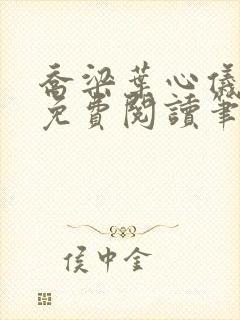 喬梁葉心儀
免費閱讀筆
侯中金